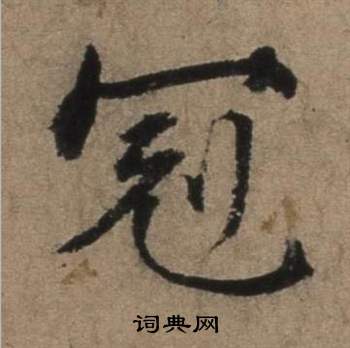 冠
词典网